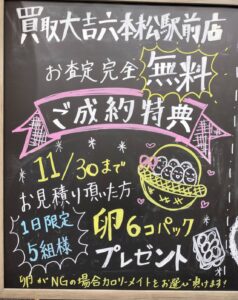 買取大吉六本松駅前店
お査定完全無料
ご成約特典
11/30まで
お見積り頂いた方
1日限定
5組様
卵6コパック
プレゼント
卵がNGの場合カロリーメイトをお選び頂けます!